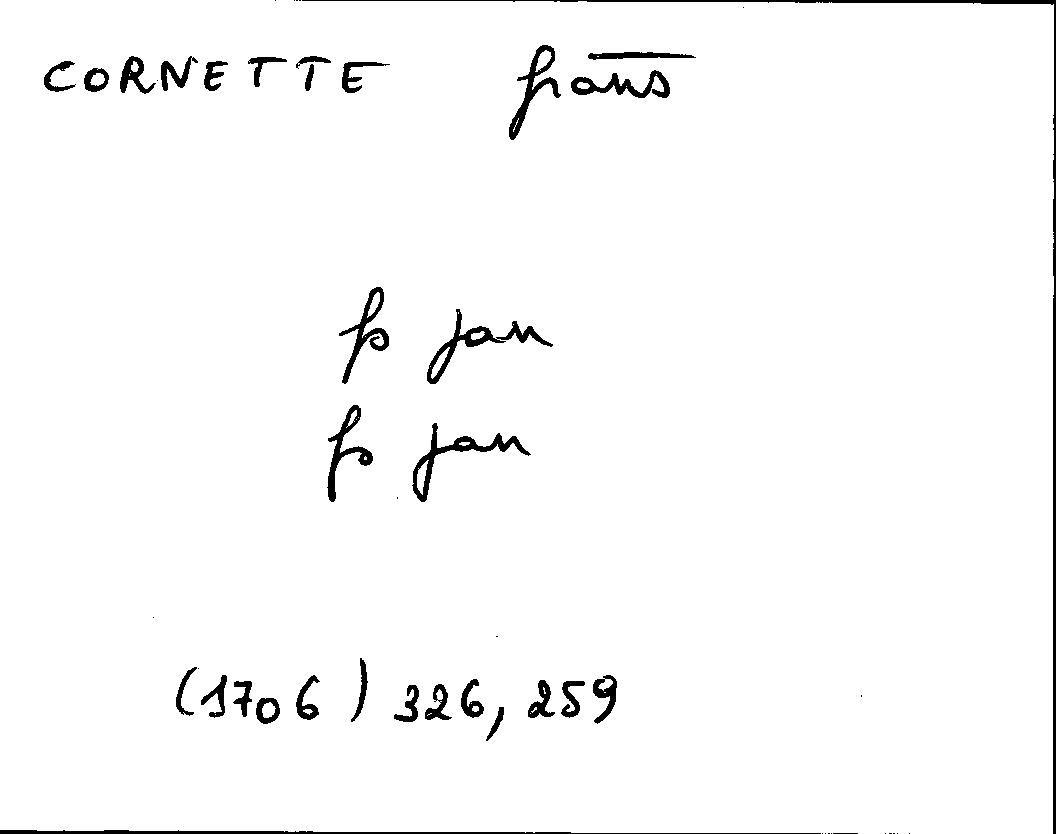 CORNETTE frans
fs jan
fs jan
(1706) 326, 259